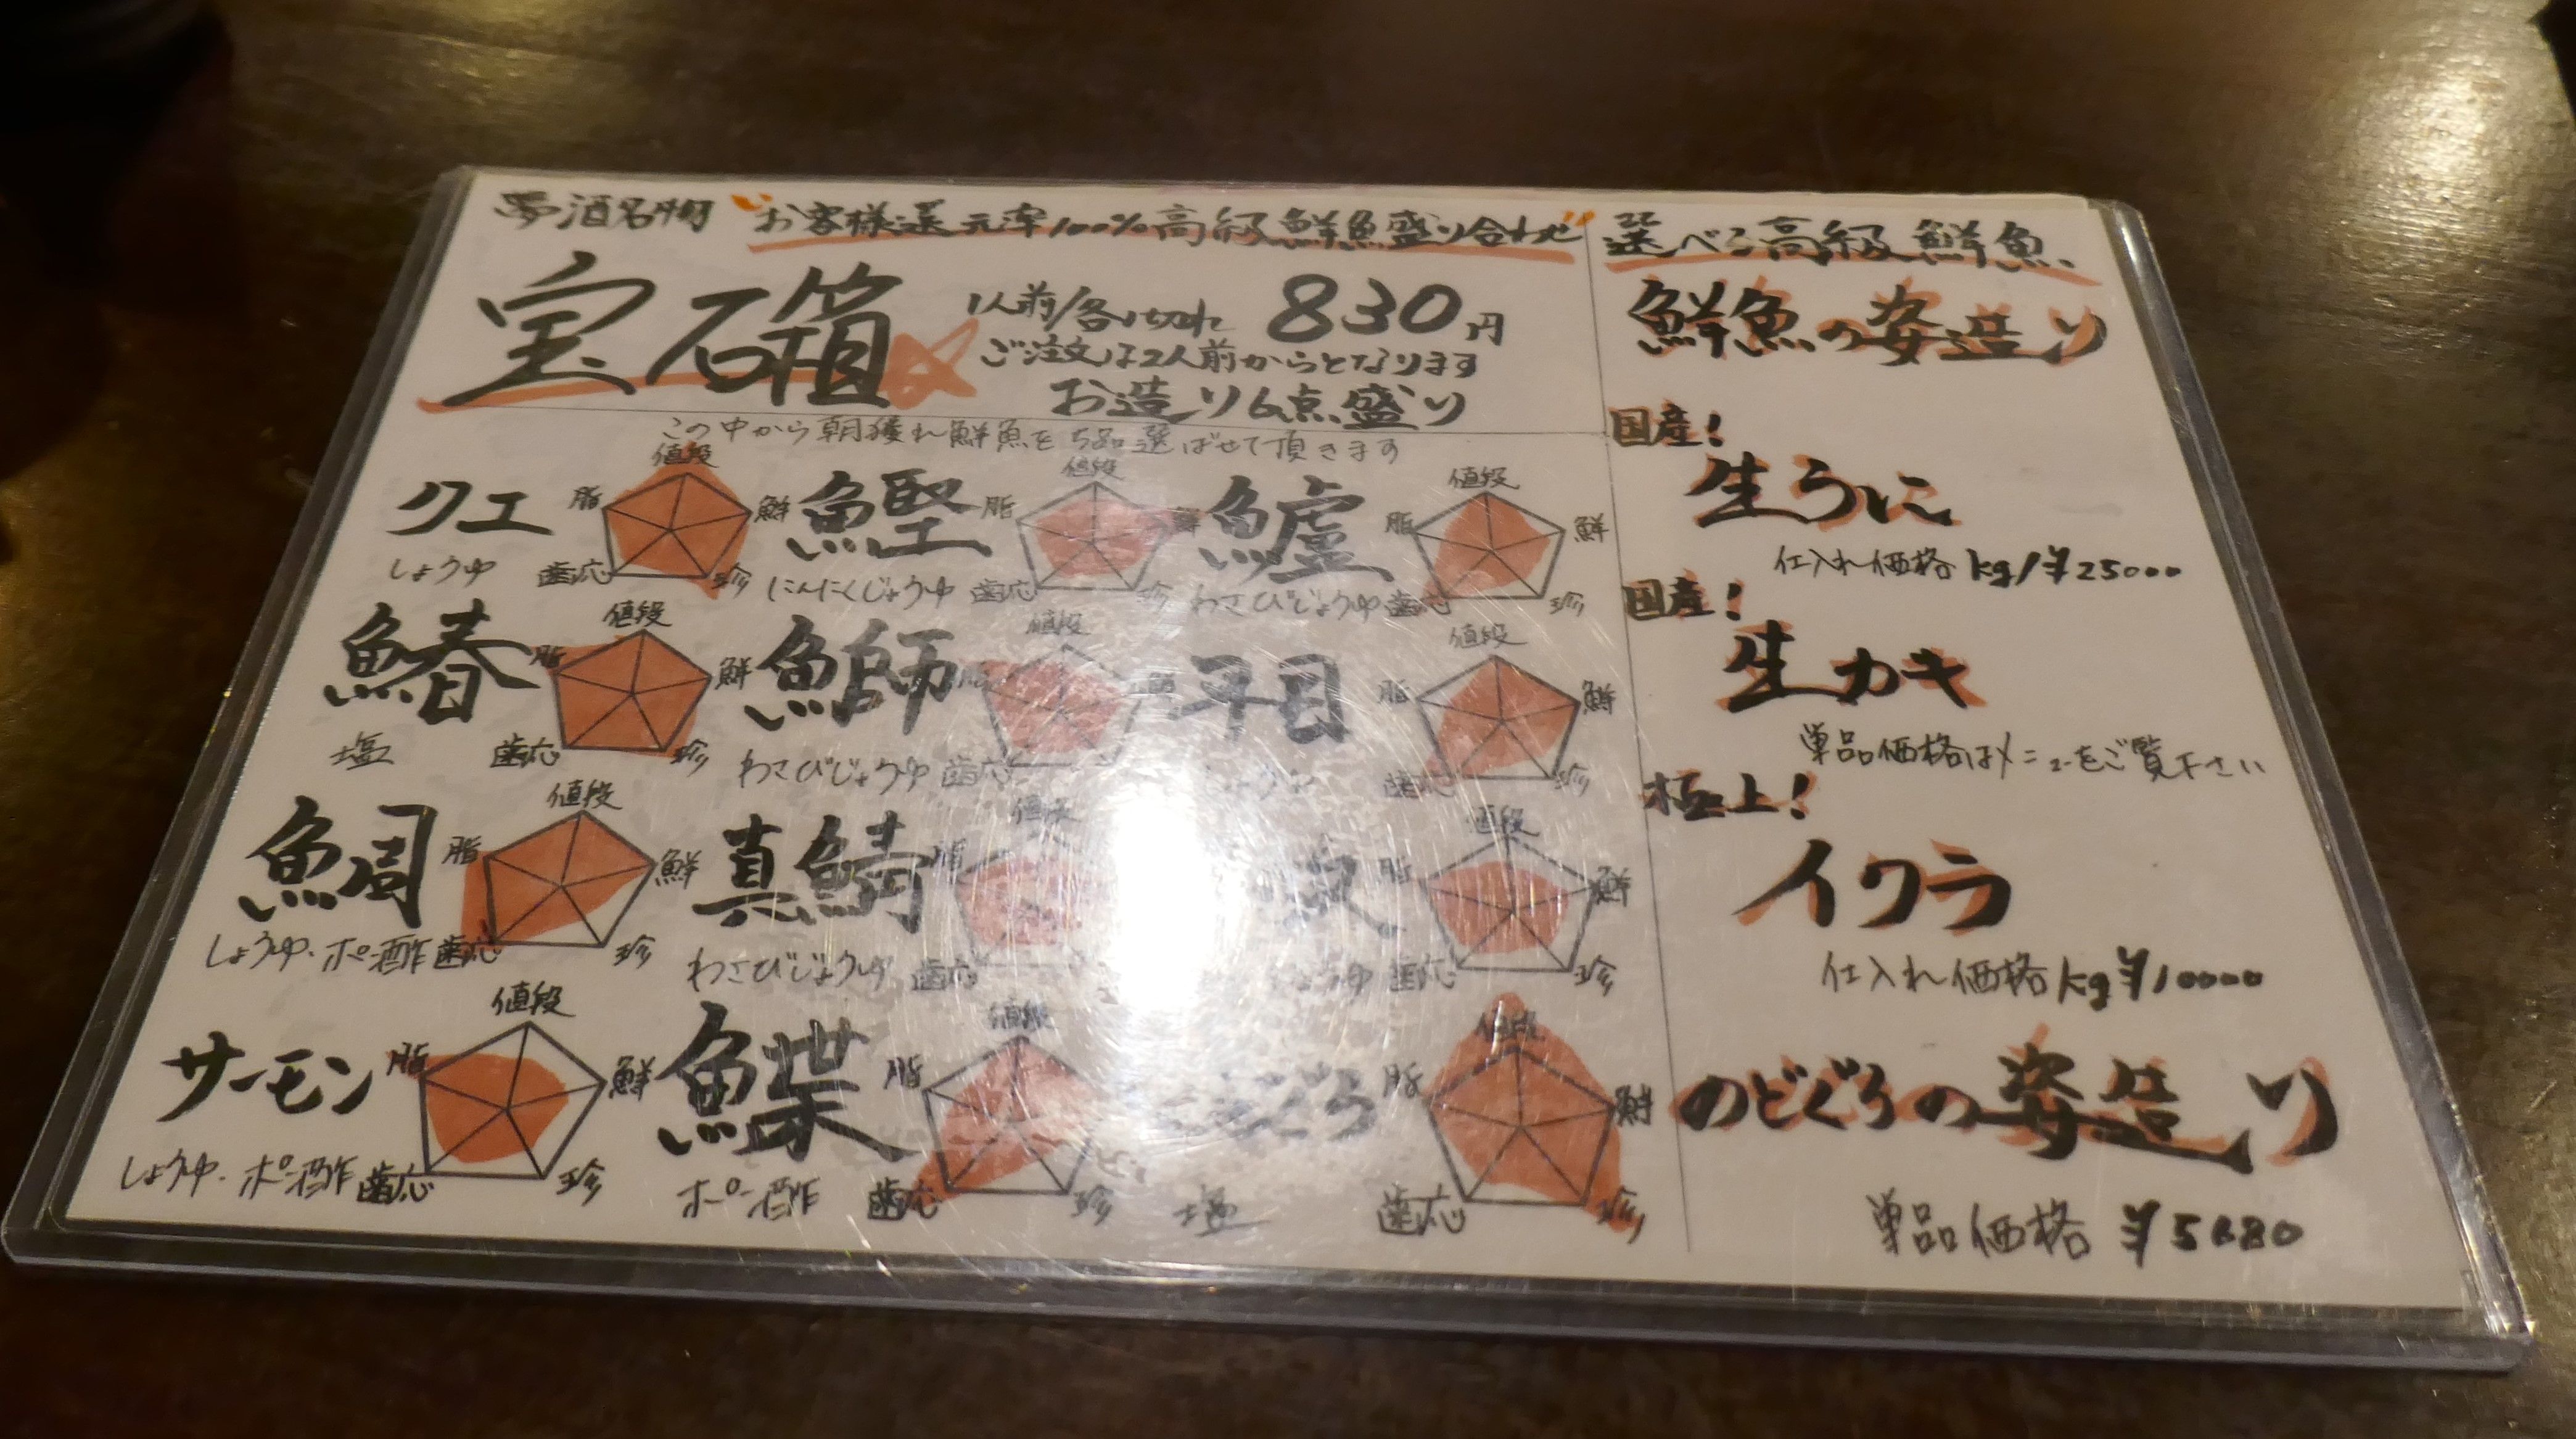 夢酒名物 "お客様還元率100%高級鮮魚盛り合わせ"
宝石箱
1人前/各1切れ 830円
ご注文は2人前からとなります
お造り6点盛り
この中から朝獲れ鮮魚を5品選ばせて頂きます
クエ
しょうゆ
値段 鮮 珍 歯応 脂
鰹
にんにくじょうゆ
値段 鮮 珍 歯応 脂
鱸
わさびじょうゆ
値段 鮮 珍 歯応 脂
鰆
塩
値段 鮮 珍 歯応 脂
鰤
わさびじょうゆ
値段 歯応
平目
値段 鮮 珍 歯応 脂
鯛
しょうゆ・ポン酢
値段 鮮 珍 歯応 脂
真鯖
わさびじょうゆ
値段 歯応 脂
値段 鮮 珍 歯応 脂
サーモン
しょうゆ・ポン酢
値段 鮮 珍 歯応 脂
鰈
ポン酢
値段 珍 歯応 脂
塩
値段 鮮 珍 歯応 脂
選べる高級鮮魚
鮮魚の姿造り
国産!
生うに
仕入れ価格kg/¥25000
国産!
生カキ
単品価格はメニューをご覧下さい
極上!
イクラ
仕入れ価格kg¥10000
のどぐろの姿造り
単品価格